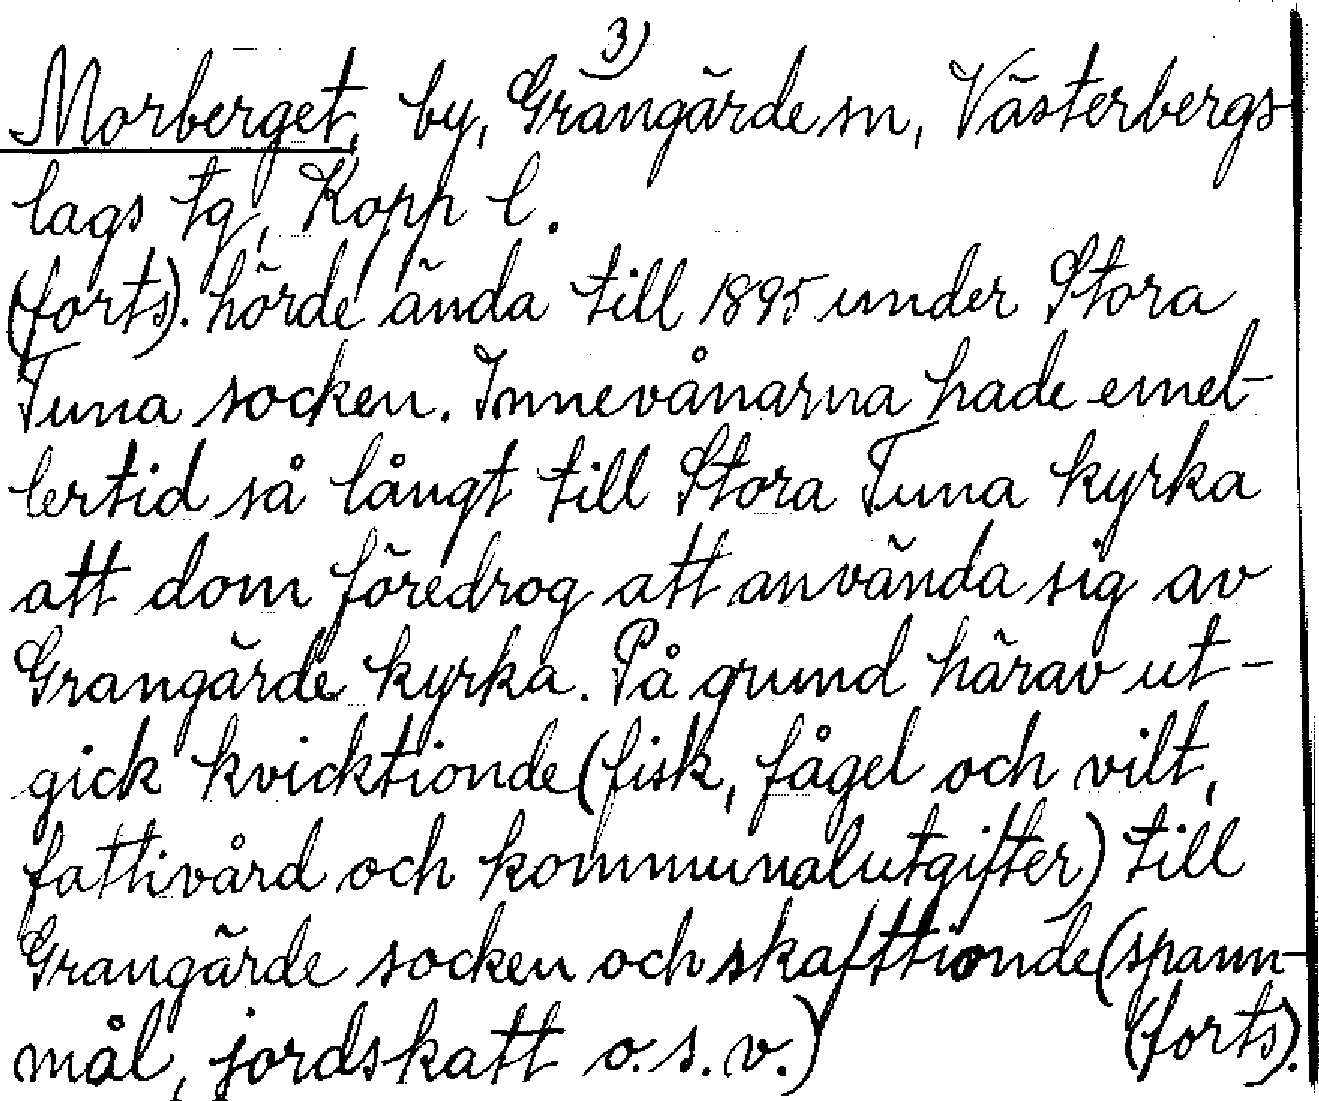 3)
Morberget, by, Grangärde sn, Västerbergs-
lags tg, Kopp l.
(forts). hörde ända till 1895 under Stora
Tuna socken. Innevånarna hade emel-
lertid så långt till Stora Tuna kyrka
att dom föredrog att använda sig av
Grangärde kyrka. På grund härav ut-
gick kvicktionde (fisk, fågel och vilt,
fattivård och kommunalutgifter) till
Grangärde socken och skafttionde (spann-
mål, jordskatt o.s.v.) (forts).